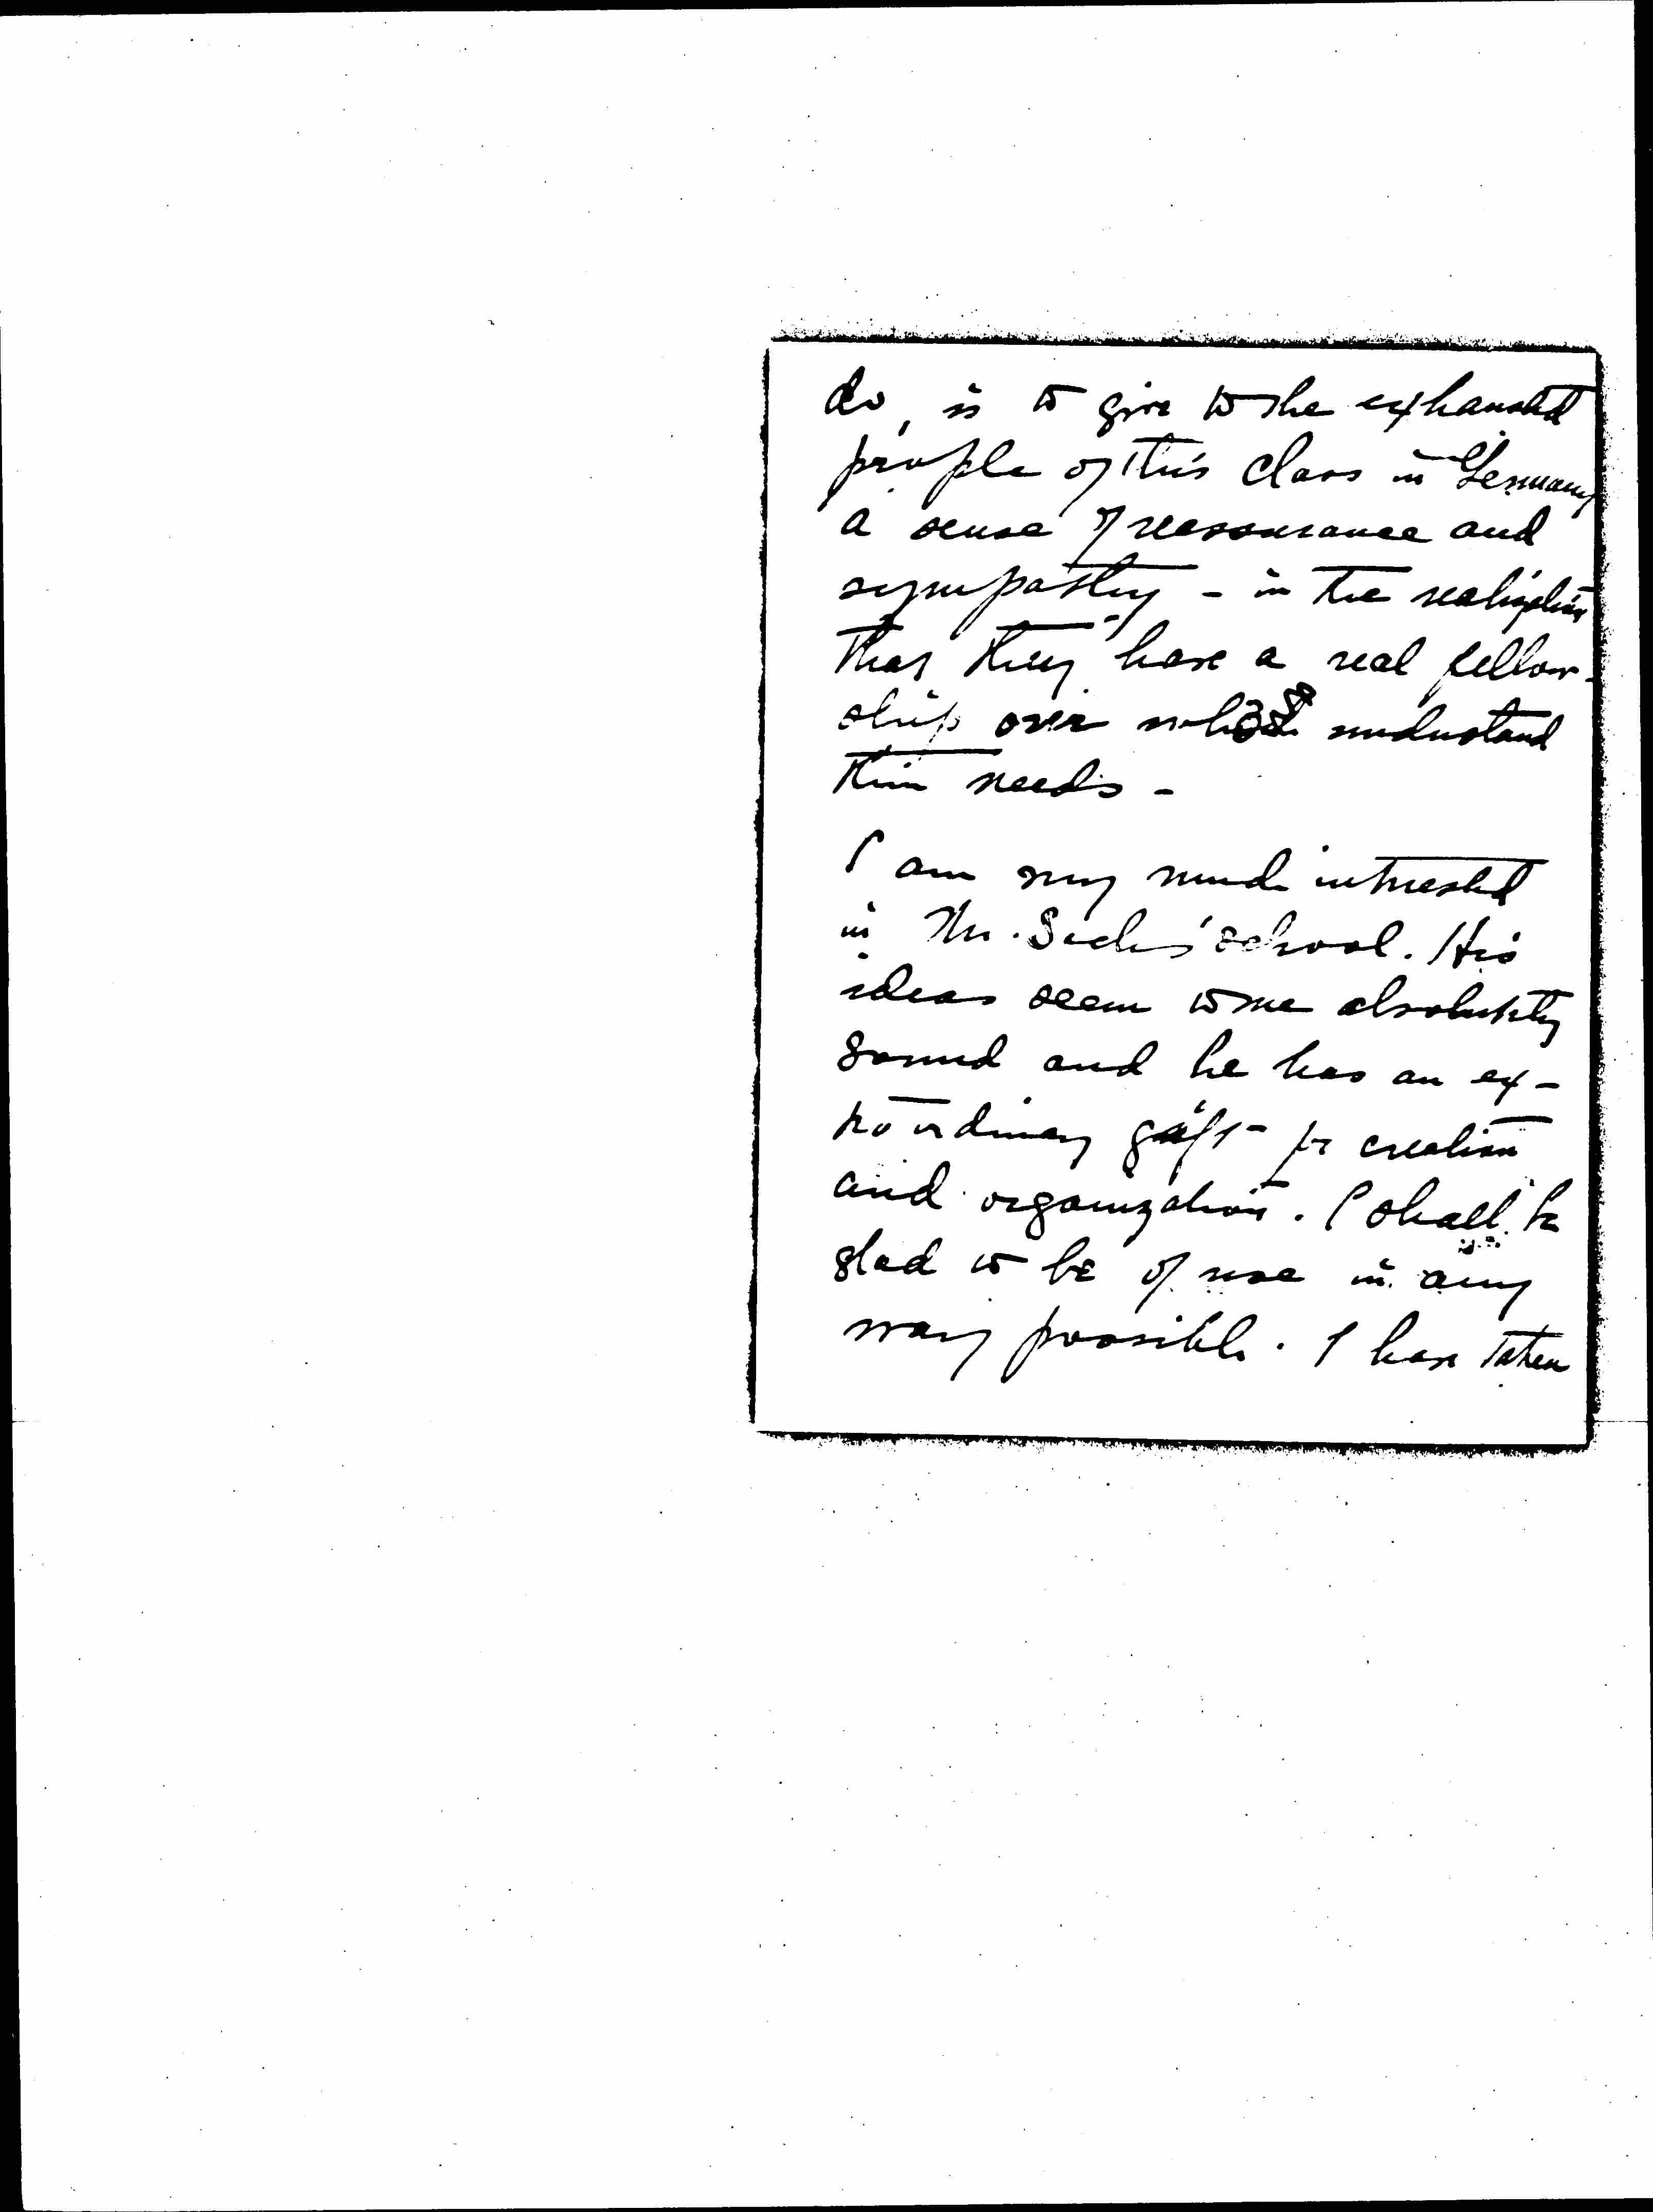 do, is to give to the exhausted
people of this class in Germany
a sense of reassurance and
sympathy - in the realization
that they have a real fellow-
ship over who understand
their needs -
I am very much interested
in Mr. Sachs' school. His
ideas seem to me absolutely
sound and he has an ex-
traordinary gift for creation
and organization. I shall be
glad to be of use in any
way possible. I have taken